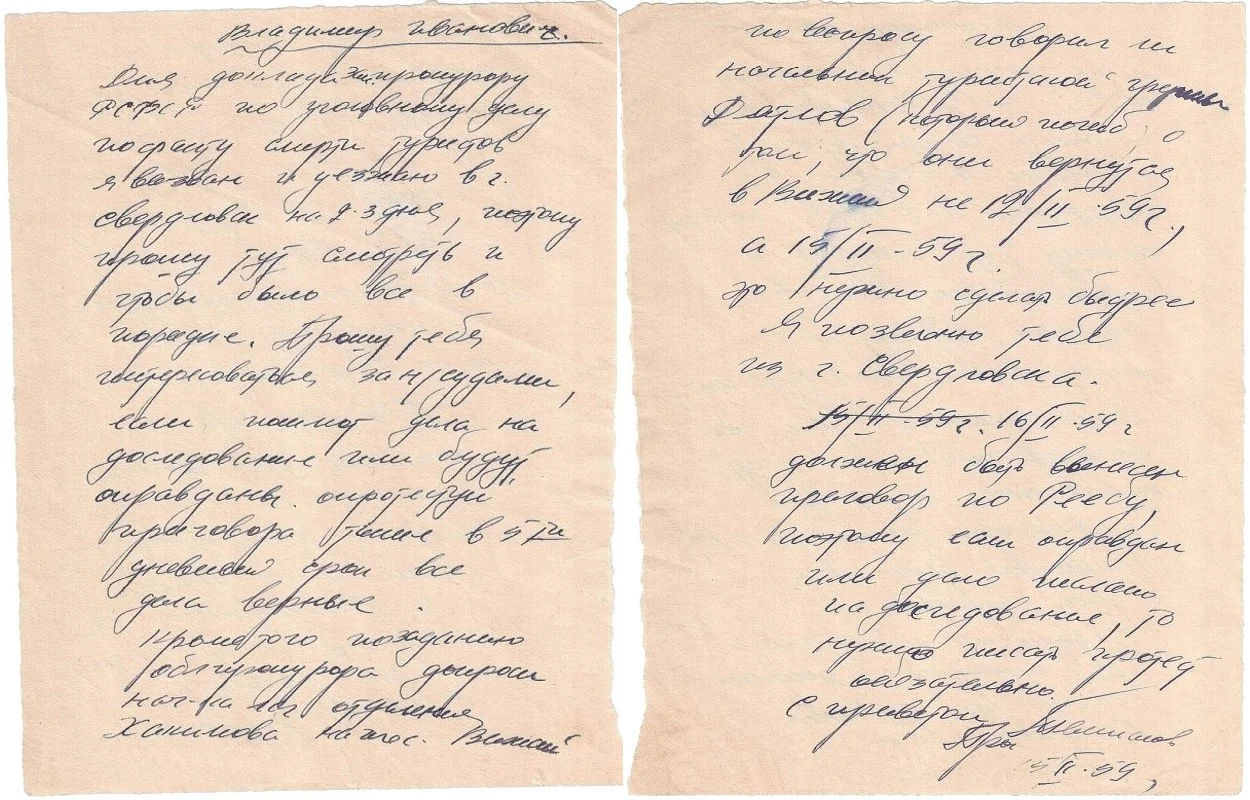 Владимир Иванович.
Для доклада зам. прокурору
РСФСР по уголовному делу
по факту смерти туристов
я вызван и уезжаю в г.
Свердловск на 2-3 дня, поэтому
прошу тут смотреть и
чтобы было все в
порядке. Прошу тебя
интересоваться за н/судами,
если пошлют дела на
доследование или будут
оправданы опротестуй
приговора также в 5ти
дневный срок все
дела верные.
Кроме того по заданию
облпрокурора допроси
нач-ка отделения
Хакимова на пос. Вижай
по вопросу говорил ли
начальник туристской группы
Дятлов (который погиб) о
том, что они вернутся
в Вижай не 12/II-59 г.,
а 15/II-59 г.
это нужно сделать быстрее
Я позвоню тебе
из г. Свердловска.
15/II-59 г. 16/II-59 г
должен быть вынесен
приговор по Реебу,
поэтому если оправдан
или дело послано
на доследование, то
нужно писать протест
обязательно.
С приветом
Темпалов
15/II-59 г